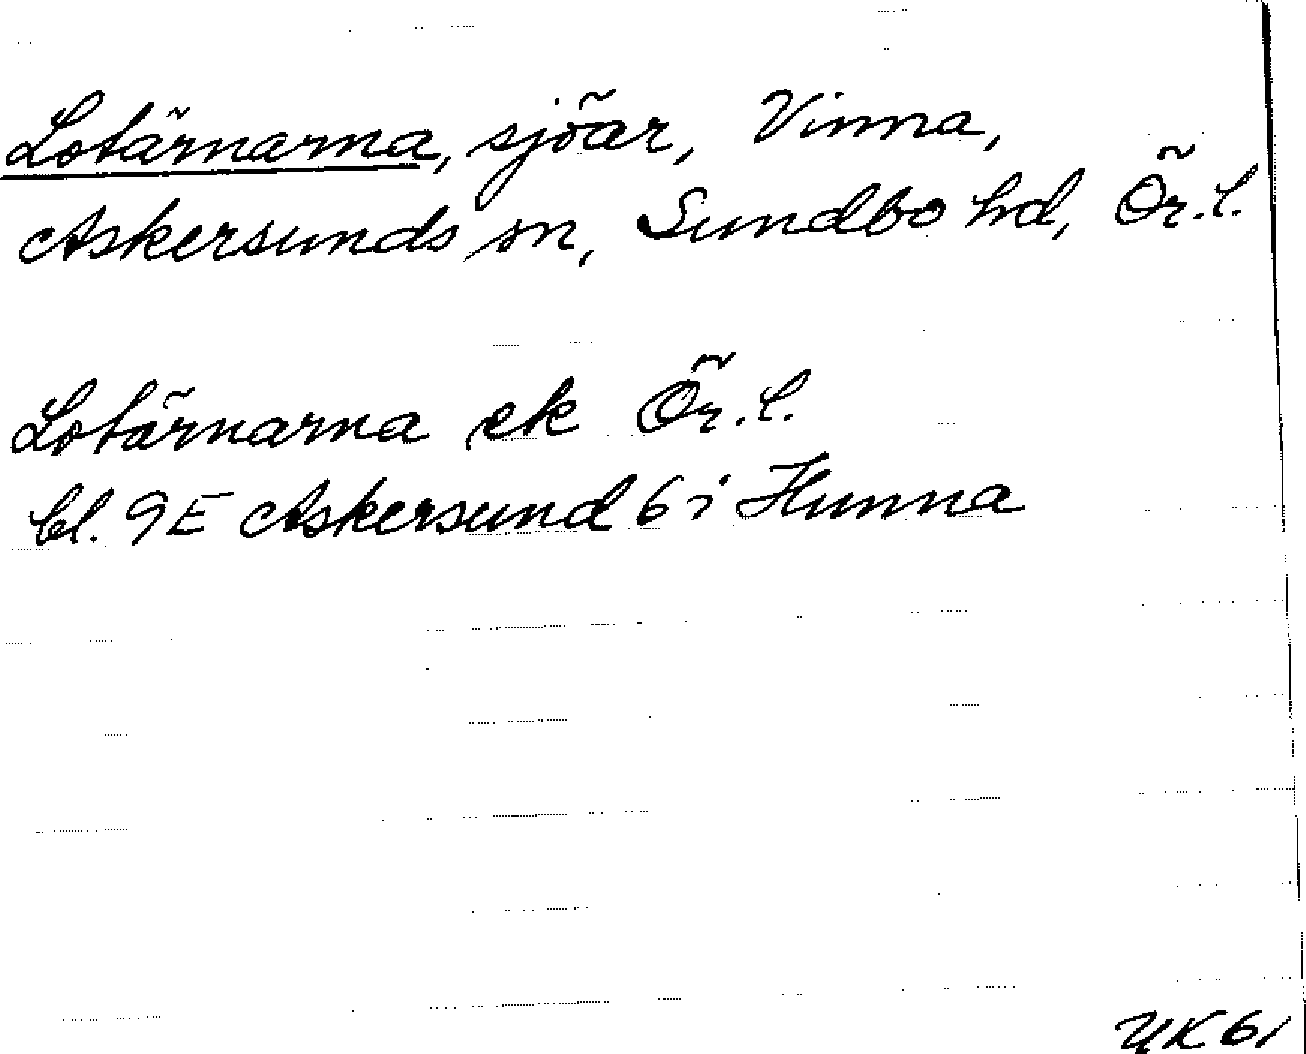 Lotärnarna, sjöar, Vinna,
Askersunds sn, Sundbo hd, Ör.l.
Lotärnarna ek Ör.l.
bl. 9E Askersund 6 i Hunna
YK 61